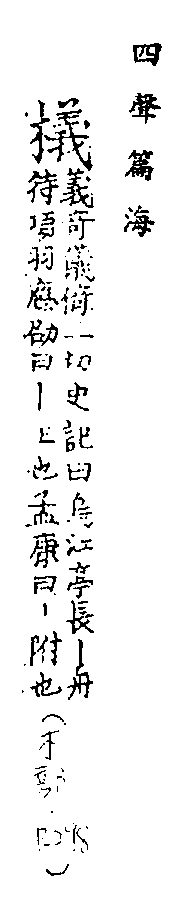 四聲篇海
檥
義奇儀倚二切史記曰烏江亭長丨舟
待項羽應劭曰丨上也孟康曰丨附也